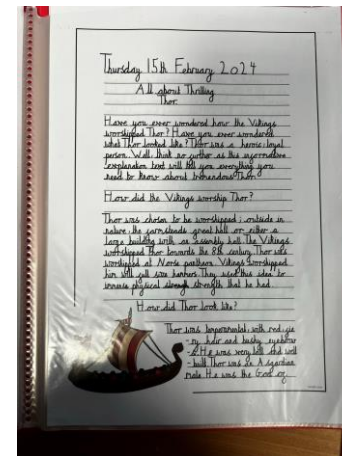 Thursday 15th February 2024
All about Thrilling
Thor
Have you ever wondered how the Vikings
worshipped Thor? Have you ever wondered
what Thor looked like? Thor was a heroic, loyal
person. Well, think no further as this informative
explanation text will tell you everything you
need to know about tremendous Thor.
How did the Vikings worship Thor?
Thor was chosen to be worshipped; outside in
nature, the farmsteads great hall or either a
large building with an assembly hall. The Vikings
worshipped Thor towards the 8th century. Thor was
worshipped as Norse pantheon. Vikings worshipped
him with full size hammers. They used this idea to
immense physical strength that he had.
How did Thor look like?
Thor was temperamental, with red, fie
-ry hair and bushy eyebrow
-s. He was very tall and well
-built. Thor was an Asgardian
male. He was the God of